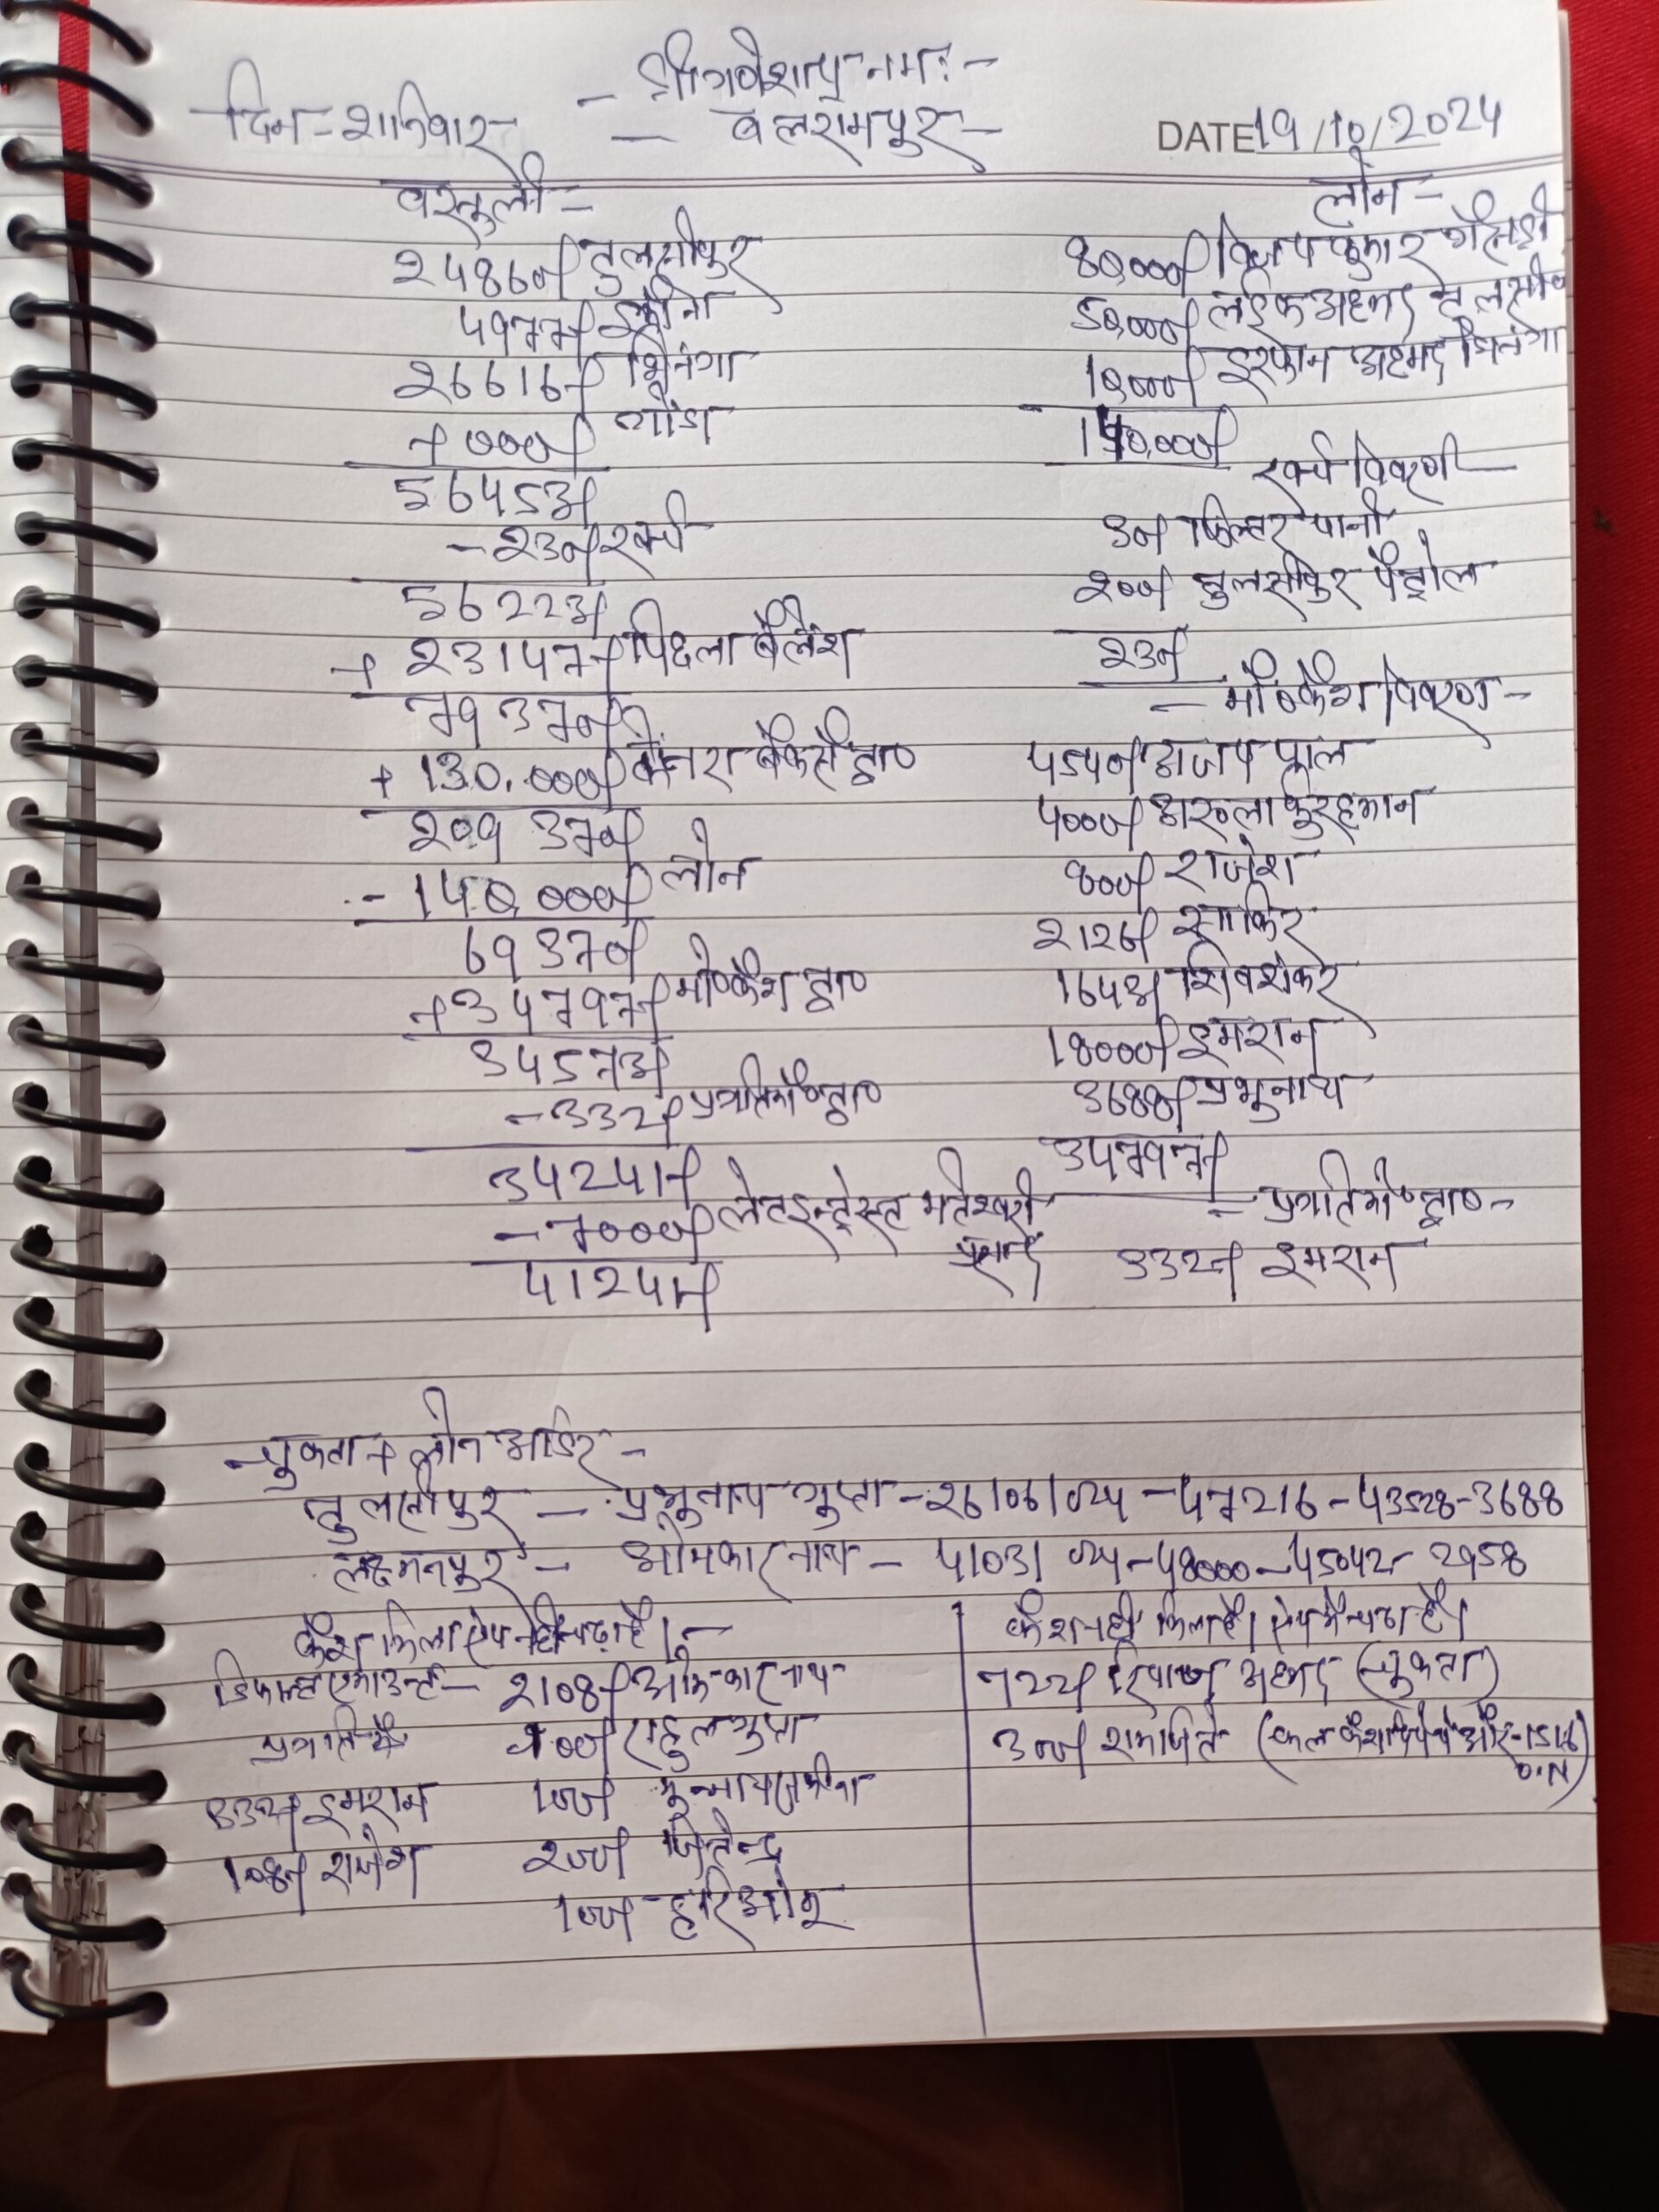 - श्री गणेशाय नमः -
दिन - शनिवार - बलरामपुर - DATE 19/10/2024
वसूली -
24860/ तुलसीपुर
4977/ इकौना
26616/ भिनगा
+ 000/ गोंडा
56453/
- 230/ खर्च
56223/
+ 23147/ पिछला बैलेंश
79370/
+ 130,000/ केनरा बैंक से द्वा०
209370/
- 140,000/ लोन
69370/
34573/
- 332/ द्वा०
34241/
- 7000/ लेट इन्ट्रेस्ट
प्रसाद
41241/
लोन -
80,000/ विजय कुमार
50,000/ लईक अहमद
10,000/ इरफान अहमद भिनगा
140,000/
खर्च विवरण -
30/ फिल्टर पानी
200/ तुलसीपुर पैट्रोल
230/
- मो० कैश विवरण -
4540/ अजय पाल
4000/
800/ राजेश
2126/ साकिर
1643/ शिवशंकर
18000/ इमरान
3688/ प्रभुनाथ
34797/
332/ इमरान
- चुकता + लोन आर्डर -
तुलसीपुर - प्रभुनाथ गुप्ता - 26106 - 47216 - 43528 - 3688
लक्ष्मनपुर - ओमकार नाथ - 41031 - 48000 - 45042 - 2958
कैश मिला ऐप नहीं चढ़ा है। -
2108/ ओमकार नाथ
राहुल गुप्ता
332/ इमरान 100/
108/ राजेश 200/ जितेन्द्र
100/ हरिओम
कैश नहीं मिला है। ऐप में चढ़ा है।
722/ रियाज अहमद (चुकता)
300/